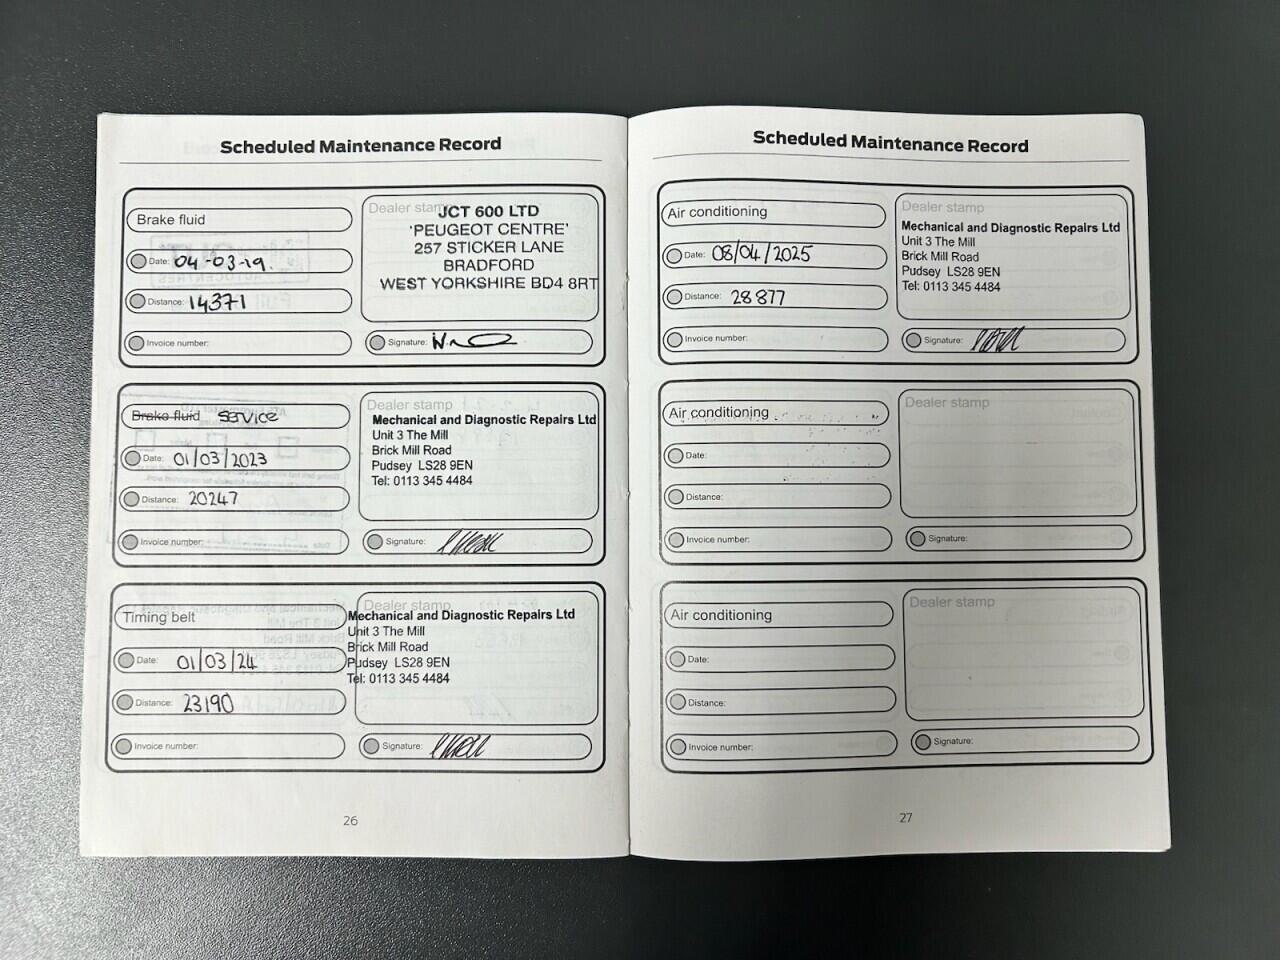 Scheduled Maintenance Record
Brake fluid
Date: 04-03-19.
Distance: 14371
Invoice number:
Dealer stamp
JCT 600 LTD
'PEUGEOT CENTRE'
257 STICKER LANE
BRADFORD
WEST YORKSHIRE BD4 8RT
Signature:
Brake fluid SERVICE
Date: 01/03/2023
Distance: 20247
Invoice number:
Dealer stamp
Mechanical and Diagnostic Repairs Ltd
Unit 3 The Mill
Brick Mill Road
Pudsey LS28 9EN
Tel: 0113 345 4484
Signature:
Timing belt
Date: 01/03/24
Distance: 23190
Invoice number:
Dealer stamp
Mechanical and Diagnostic Repairs Ltd
Unit 3 The Mill
Brick Mill Road
Pudsey LS28 9EN
Tel: 0113 345 4484
Signature:
26
Scheduled Maintenance Record
Air conditioning
Date: 08/04/2025
Distance: 28877
Invoice number:
Dealer stamp
Mechanical and Diagnostic Repairs Ltd
Unit 3 The Mill
Brick Mill Road
Pudsey LS28 9EN
Tel: 0113 345 4484
Signature:
Air conditioning
Date:
Distance:
Invoice number:
Dealer stamp
Signature:
Air conditioning
Date:
Distance:
Invoice number:
Dealer stamp
Signature:
27